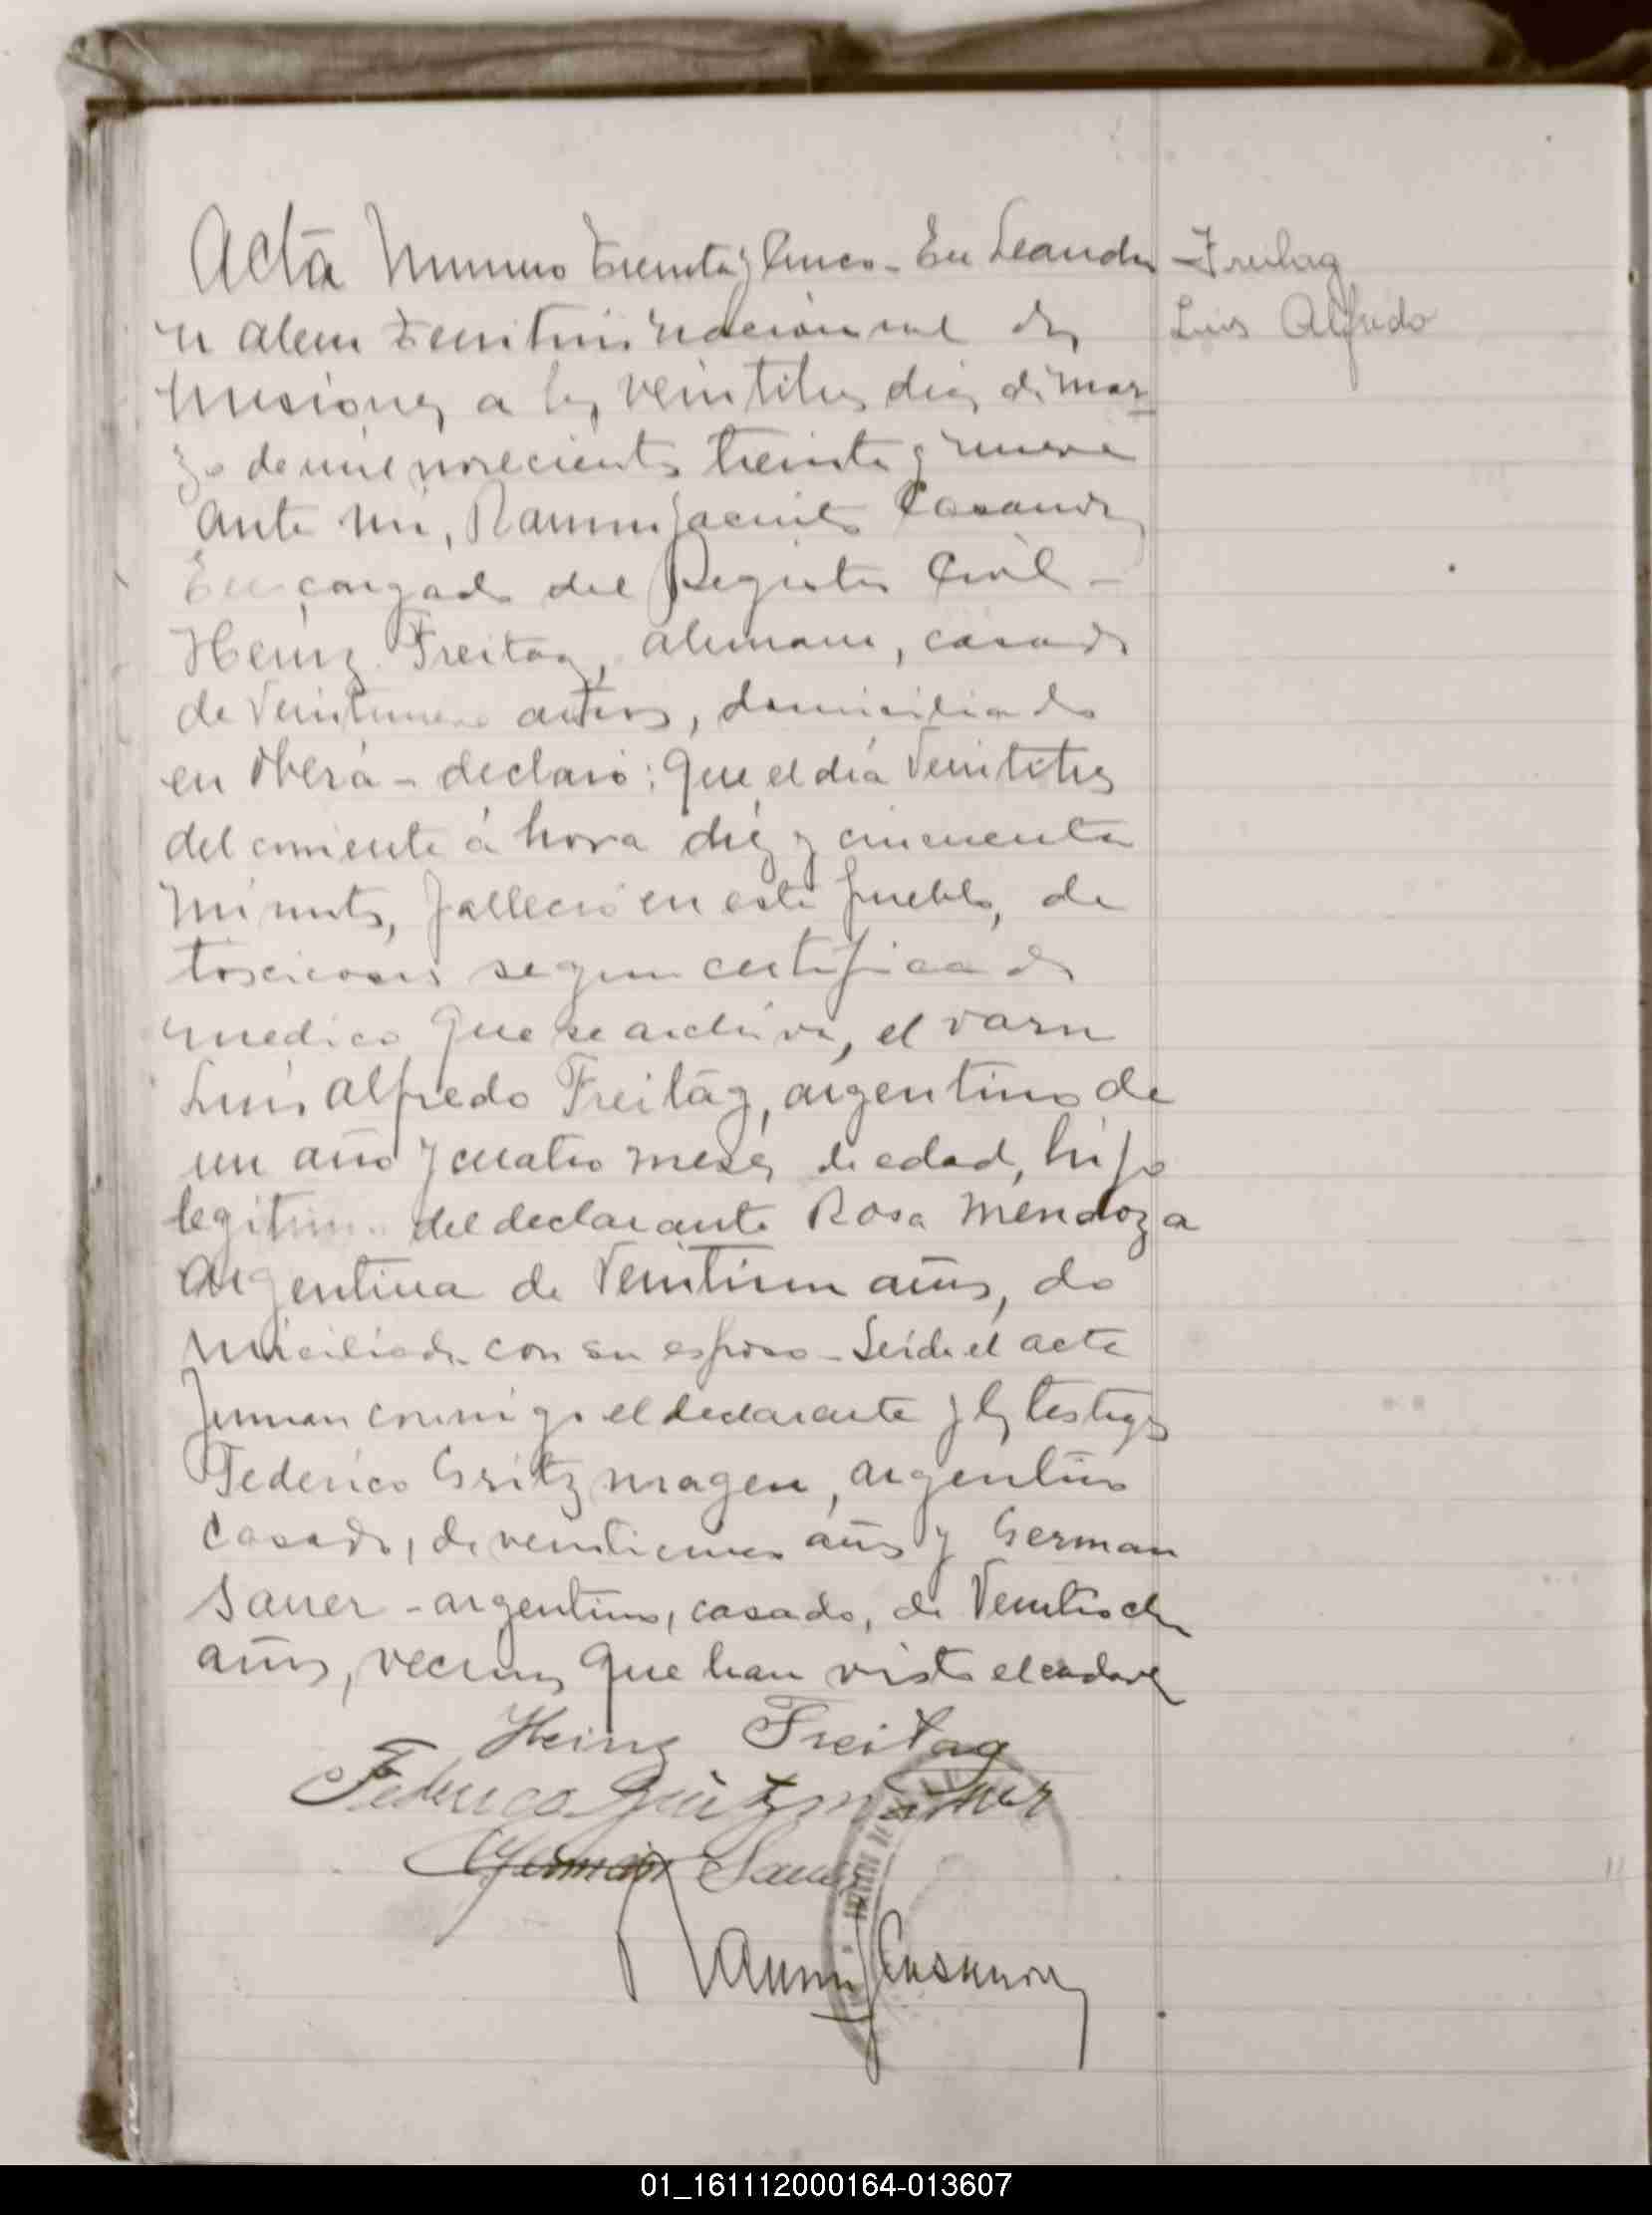 Acta Numero Treinta y Cinco - En Leandro
N Alem Territorio Nacional de
Misiones a los veintitres dias de Mar-
zo de mil novecientos treinta y nueve
ante mi, Ramon Jacinto Casanova
Encargado del Registro Civil -
Heinz Freitag, aleman, casado
de años, domiciliado
en Oberá - declaró: Que el dia Veintitres
del corriente á hora diez y cincuenta
minutos, falleció en este pueblo, de
toxicosis segun certificado
medico que se archiva, el varon
Luis Alfredo Freitag, argentino de
un año y cuatro meses de edad, hijo
legitimo del declarante Rosa Mendoza
Argentina de Veintiun años, do
miciliada con su esposo - Leida el acta
firman conmigo el declarante y los testigos
Federico Gritzmagen, argentino
casado, de años y German
Sauer - argentino, casado, de Veintiocho
años, vecinos que han visto el cadaver
Heinz Freitag
Federico
German Sauer
Ramon J Casanova
Freitag
Luis Alfredo
01_161112000164-013607